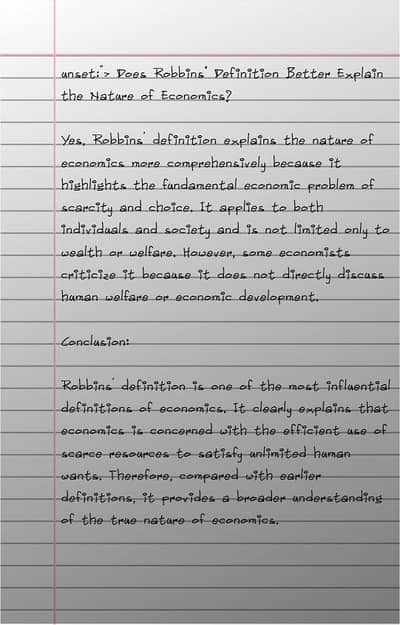 unset;"> Does Robbins' Definition Better Explain
the Nature of Economics?
Yes, Robbins' definition explains the nature of
economics more comprehensively because it
highlights the fundamental economic problem of
scarcity and choice. It applies to both
individuals and society and is not limited only to
wealth or welfare. However, some economists
criticize it because it does not directly discuss
human welfare or economic development.
Conclusion:
Robbins' definition is one of the most influential
definitions of economics. It clearly explains that
economics is concerned with the efficient use of
scarce resources to satisfy unlimited human
wants. Therefore, compared with earlier
definitions, it provides a broader understanding
of the true nature of economics.